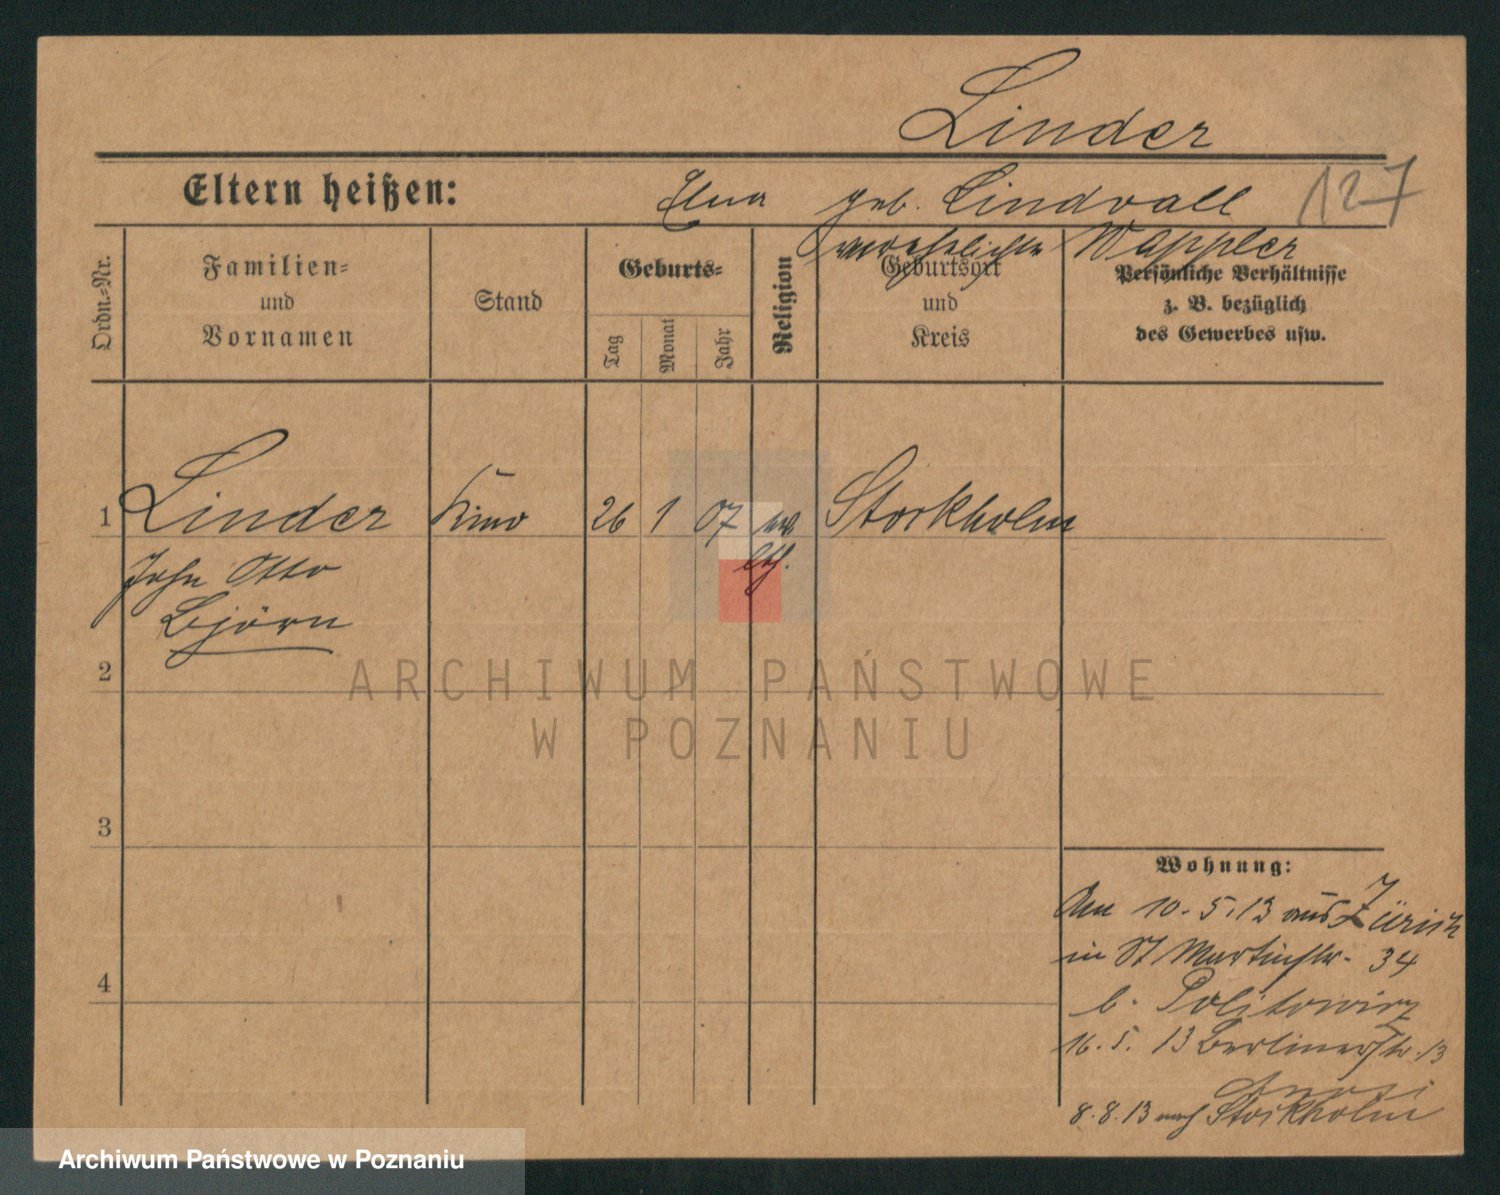 Linder
Eltern heißen: Elna geb. Lindvall 127
verehelichte Wappler
Ordn.-Nr.
Familien-
und
Vornamen
Stand
Geburts-
Tag
Monat
Jahr
Religion
Geburtsort
und
Kreis
Persönliche Verhältnisse
z. B. bezüglich
des Gewerbes usw.
1 Linder 26 1 07 ev Stockholm
lth.
John Otto
Björn
2
ARCHIWUM PAŃSTWOWE
W POZNANIU
3
Wohnung:
Am 10.5.13 aus Zürich
in St Martinstr. 34
4
b. Politowicz
16.5.13 Berlinerstr. 13
8.8.13 nach Stockholm
Archiwum Państwowe w Poznaniu